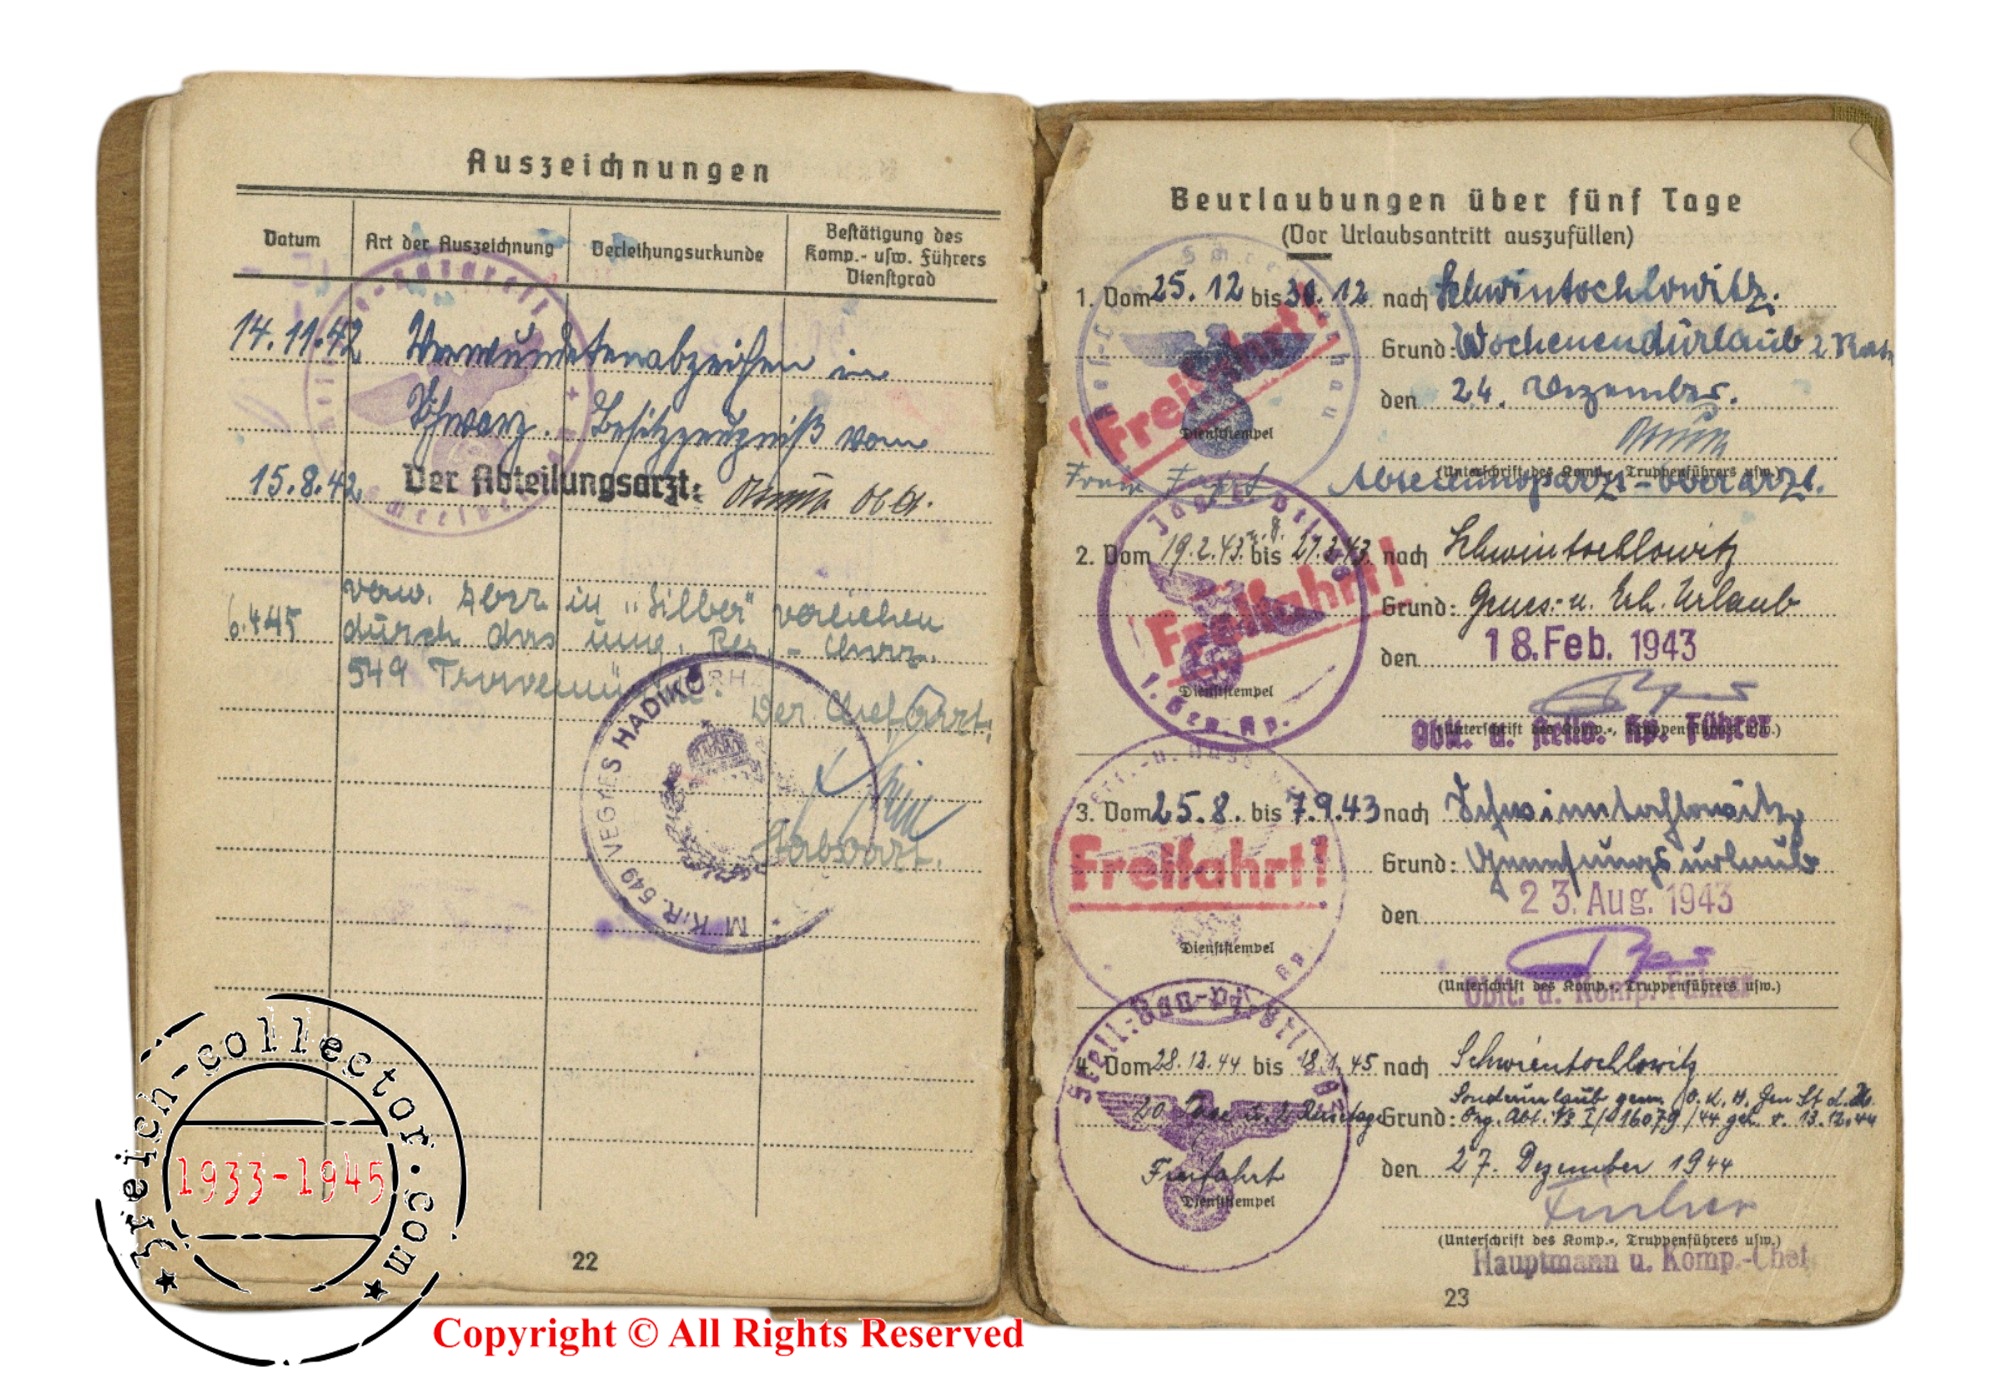 Auszeichnungen
Datum
Art der Auszeichnung
Verleihungsurkunde
Bestätigung des
Komp.- usw. Führers
Dienstgrad
14.11.42 Verwundetenabzeichen in
Schwarz. Besitzzeugniß vom
15.8.42 Der Abteilungsarzt:
6.4.45 verw. Abz. in „Silber" verliehen
durch das
549 Der Chefarzt.
Stabsarzt.
M. KIR. 549 VEGYES HADIKÓRH
22
Beurlaubungen über fünf Tage
(Vor Urlaubsantritt auszufüllen)
1. Vom 25.12 bis 30.12 nach Schwintochlowitz.
Grund: Wochenendurlaub
den 24. Dezember.
Freifahrt!
Dienststempel
(Unterschrift des Komp., Truppenführers usw.)
Abteilungsarzt-Oberarzt.
2. Vom 19.2.43 bis 27.2.43 nach Schwintochlowitz
Grund: Genes.- u. Erh. Urlaub
Freifahrt!
den 18. Feb. 1943
Dienststempel
(Unterschrift des Komp., Truppenführers usw.)
Oblt. u. stellv. Kp. Führer
1. Gen. Kp.
3. Vom 25.8. bis 7.9.43 nach Schwintochlowitz
Grund: Genesungsurlaub
Freifahrt!
den 23. Aug. 1943
Dienststempel
(Unterschrift des Komp., Truppenführers usw.)
Oblt. u. Komp. Führer
4. Vom 28.12.44 bis 18.1.45 nach Schwientochlowitz
20 Tage u. 2 Reisetage Grund: Sonderurlaub gem. O.K.H. Gen St d. H.
Org. Abt. Nr I/ 16079/44 geh. v. 13.12.44
den 27. Dezember 1944
Freifahrt
Dienststempel
(Unterschrift des Komp., Truppenführers usw.)
Hauptmann u. Komp.-Chef
23
3reich-collector.com
1933-1945
Copyright © All Rights Reserved